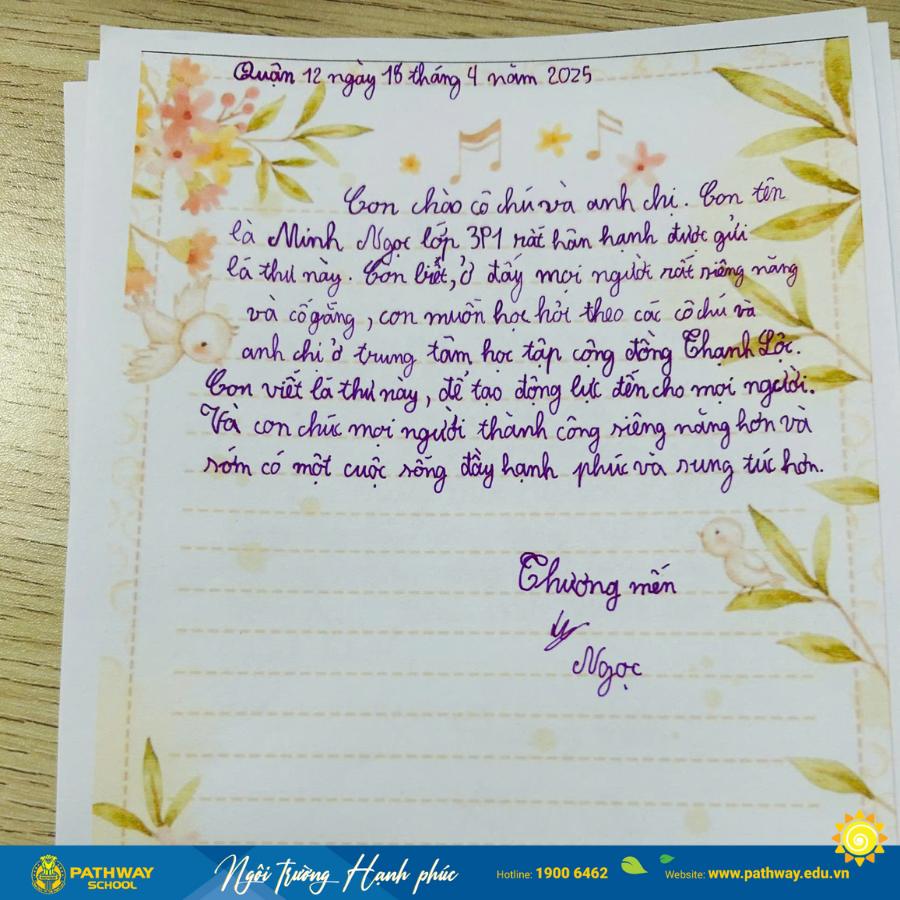 Quận 12 ngày 18 tháng 4 năm 2025
Con chào cô chú và anh chị. Con tên
là Minh Ngọc lớp 3P1 rất hân hạnh được gửi
lá thư này. Con biết, ở đấy mọi người rất siêng năng
và cố gắng, con muốn học hỏi theo các cô chú và
anh chị ở trung tâm học tập cộng đồng Thạnh Lộc.
Con viết lá thư này, để tạo động lực đến cho mọi người.
Và con chúc mọi người thành công siêng năng hơn và
sớm có một cuộc sống đầy hạnh phúc và sung túc hơn.
Thương mến
Ngọc
PATHWAY
SCHOOL
Ngôi Trường Hạnh phúc
Hotline: 1900 6462
Website: www.pathway.edu.vn